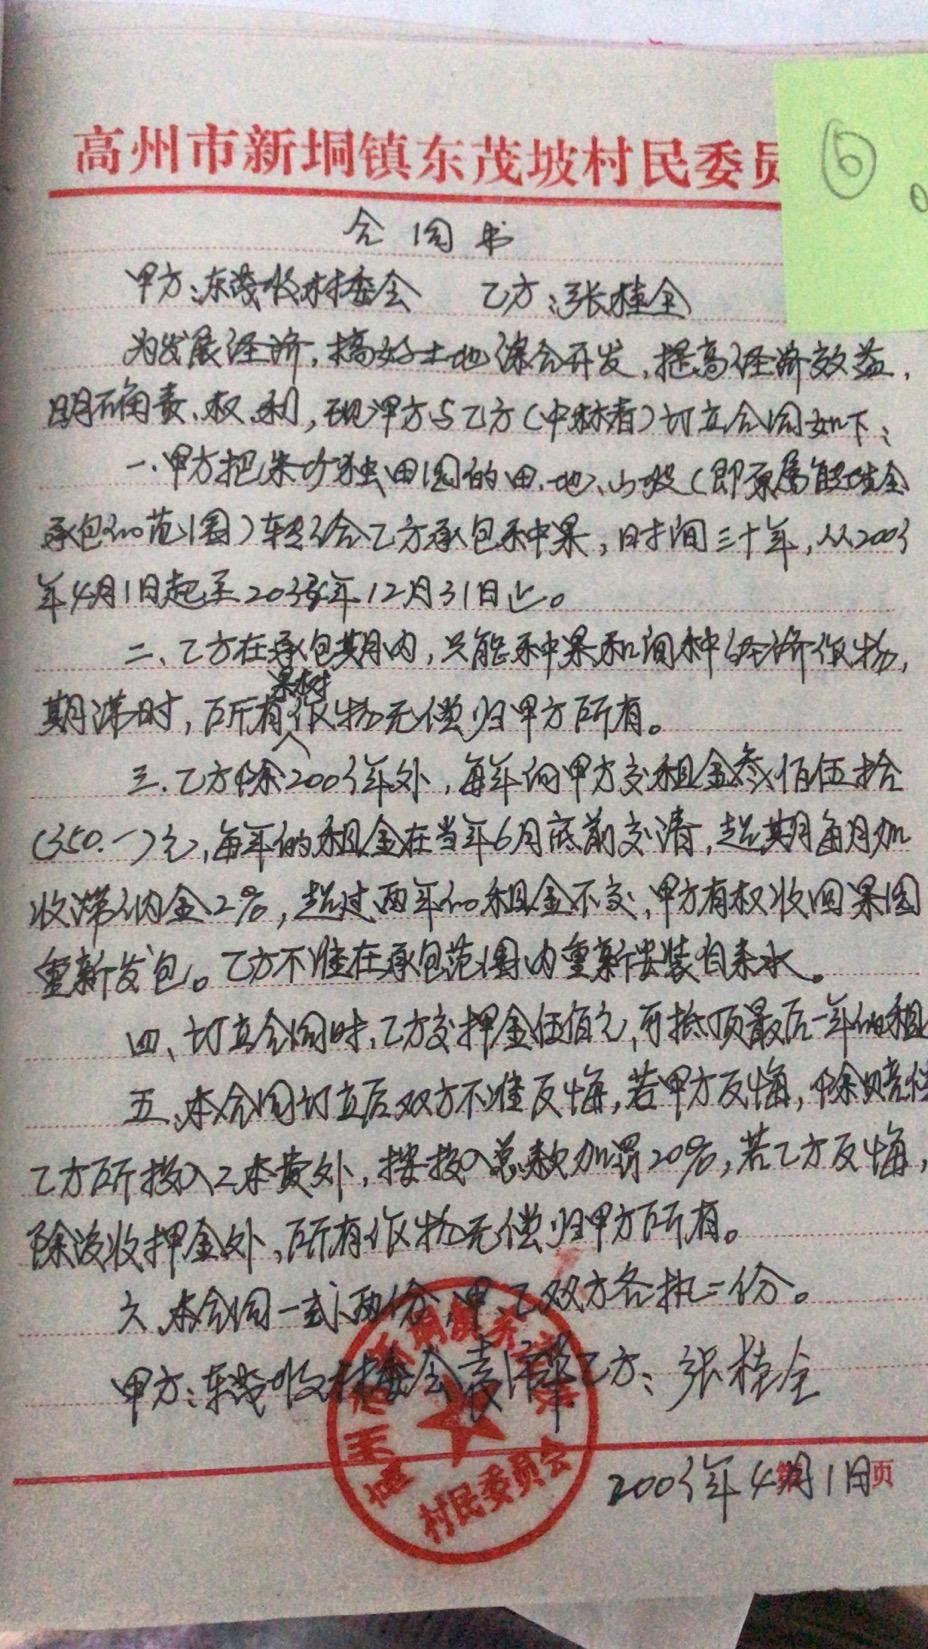 高州市新垌镇东茂坡村民委员
6
合同书
甲方:东茂坡村委会 乙方:张桂全
为发展经济,搞好土地综合开发,提高经济效益,
明确责、权、利,现甲方与乙方(中标者)订立合同如下:
一、甲方把 田园的田、地、山坡(即原属 全
承包的范围)转给乙方承包种果,时间三十年,从2003
年4月1日起至 年12月31日止。
二、乙方在承包期内,只能种果和间种经济作物,
果树
期满时,所有作物无偿归甲方所有。
三、乙方除2003年外,每年向甲方交租金叁佰伍拾
(350.-)元,每年的租金在当年6月底前交清,超期每月加
收滞纳金2%,超过两年的租金不交,甲方有权收回果园
重新发包。乙方不准在承包范围内重新安装自来水。
四、订立合同时,乙方交押金伍佰元,可抵顶最后一年的租
五、本合同订立后双方不准反悔,若甲方反悔,除赔偿
乙方所投入工本费外,按投入总款加罚20%,若乙方反悔,
除没收押金外,所有作物无偿归甲方所有。
六、本合同一式两份,甲乙双方各执一份。
甲方:东茂坡村委会 乙方:张桂全
村民委员会
2003年4月1日
页